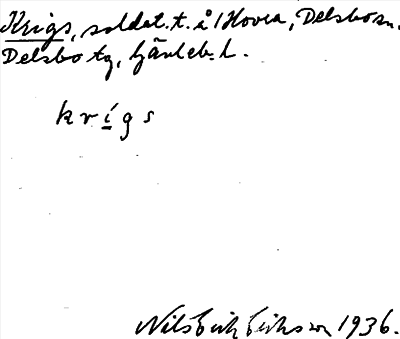 Krigs, soldat.t. å 1 Hovra, Delsbo sn.
Delsbo tg, Gävleb. l.
k r i g s
Nils Erik Eriksson 1936.